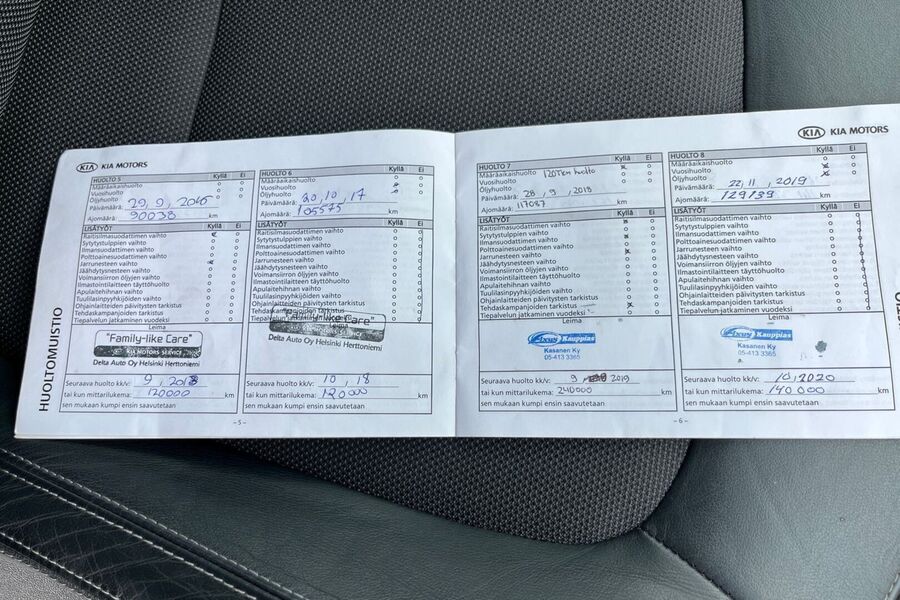 KIA KIA MOTORS
HUOLTOMUISTIO
HUOLTO 5 Kyllä Ei
Määräaikaishuolto
Vuosihuolto
Öljyhuolto
Päivämäärä: 29, 9, 2016
Ajomäärä: 90038 km
LISÄTYÖT Kyllä Ei
Raitisilmasuodattimen vaihto
Sytytystulppien vaihto
Ilmansuodattimen vaihto
Polttoainesuodattimen vaihto
Jarrunesteen vaihto
Jäähdytysnesteen vaihto
Voimansiirron öljyjen vaihto
Ilmastointilaitteen täyttöhuolto
Apulaitehihnan vaihto
Tuulilasinpyyhkijöiden vaihto
Ohjainlaitteiden päivitysten tarkistus
Tehdaskampanjoiden tarkistus
Tiepalvelun jatkaminen vuodeksi
Leima
"Family-like Care"
KIA MOTORS SERVICE
Delta Auto Oy Helsinki Herttoniemi
Seuraava huolto kk/v: 9, 2018
tai kun mittarilukema: 120000 km
sen mukaan kumpi ensin saavutetaan
- 5 -
HUOLTO 6 Kyllä Ei
Määräaikaishuolto
Vuosihuolto
Öljyhuolto
Päivämäärä: 20, 10, 17
Ajomäärä: 105575 km
LISÄTYÖT Kyllä Ei
Raitisilmasuodattimen vaihto
Sytytystulppien vaihto
Ilmansuodattimen vaihto
Polttoainesuodattimen vaihto
Jarrunesteen vaihto
Jäähdytysnesteen vaihto
Voimansiirron öljyjen vaihto
Ilmastointilaitteen täyttöhuolto
Apulaitehihnan vaihto
Tuulilasinpyyhkijöiden vaihto
Ohjainlaitteiden päivitysten tarkistus
Tehdaskampanjoiden tarkistus
Tiepalvelun jatkaminen vuodeksi
Leima
"Family-like Care"
Delta Auto Oy Helsinki Herttoniemi
Seuraava huolto kk/v: 10, 18
tai kun mittarilukema: 120000 km
sen mukaan kumpi ensin saavutetaan
KIA KIA MOTORS
HUOLTO 7 Kyllä Ei
Määräaikaishuolto 120Tkm huolto
Vuosihuolto
Öljyhuolto
Päivämäärä: 28, 9, 2018
Ajomäärä: 117087 km
LISÄTYÖT Kyllä Ei
Raitisilmasuodattimen vaihto
Sytytystulppien vaihto
Ilmansuodattimen vaihto
Polttoainesuodattimen vaihto
Jarrunesteen vaihto
Jäähdytysnesteen vaihto
Voimansiirron öljyjen vaihto
Ilmastointilaitteen täyttöhuolto
Apulaitehihnan vaihto
Tuulilasinpyyhkijöiden vaihto
Ohjainlaitteiden päivitysten tarkistus
Tehdaskampanjoiden tarkistus
Tiepalvelun jatkaminen vuodeksi
Leima
Kauppias
Kasanen Ky
05-413 3365
Seuraava huolto kk/v: 9 2019
tai kun mittarilukema: 240000 km
sen mukaan kumpi ensin saavutetaan
- 6 -
HUOLTO 8 Kyllä Ei
Määräaikaishuolto
Vuosihuolto
Öljyhuolto
Päivämäärä: 22, 11, 2019
Ajomäärä: 129139 km
LISÄTYÖT Kyllä Ei
Raitisilmasuodattimen vaihto
Sytytystulppien vaihto
Ilmansuodattimen vaihto
Polttoainesuodattimen vaihto
Jarrunesteen vaihto
Jäähdytysnesteen vaihto
Voimansiirron öljyjen vaihto
Ilmastointilaitteen täyttöhuolto
Apulaitehihnan vaihto
Tuulilasinpyyhkijöiden vaihto
Ohjainlaitteiden päivitysten tarkistus
Tehdaskampanjoiden tarkistus
Tiepalvelun jatkaminen vuodeksi
Leima
Kauppias
Kasanen Ky
05-413 3365
Seuraava huolto kk/v: 10, 2020
tai kun mittarilukema: 140000 km
sen mukaan kumpi ensin saavutetaan